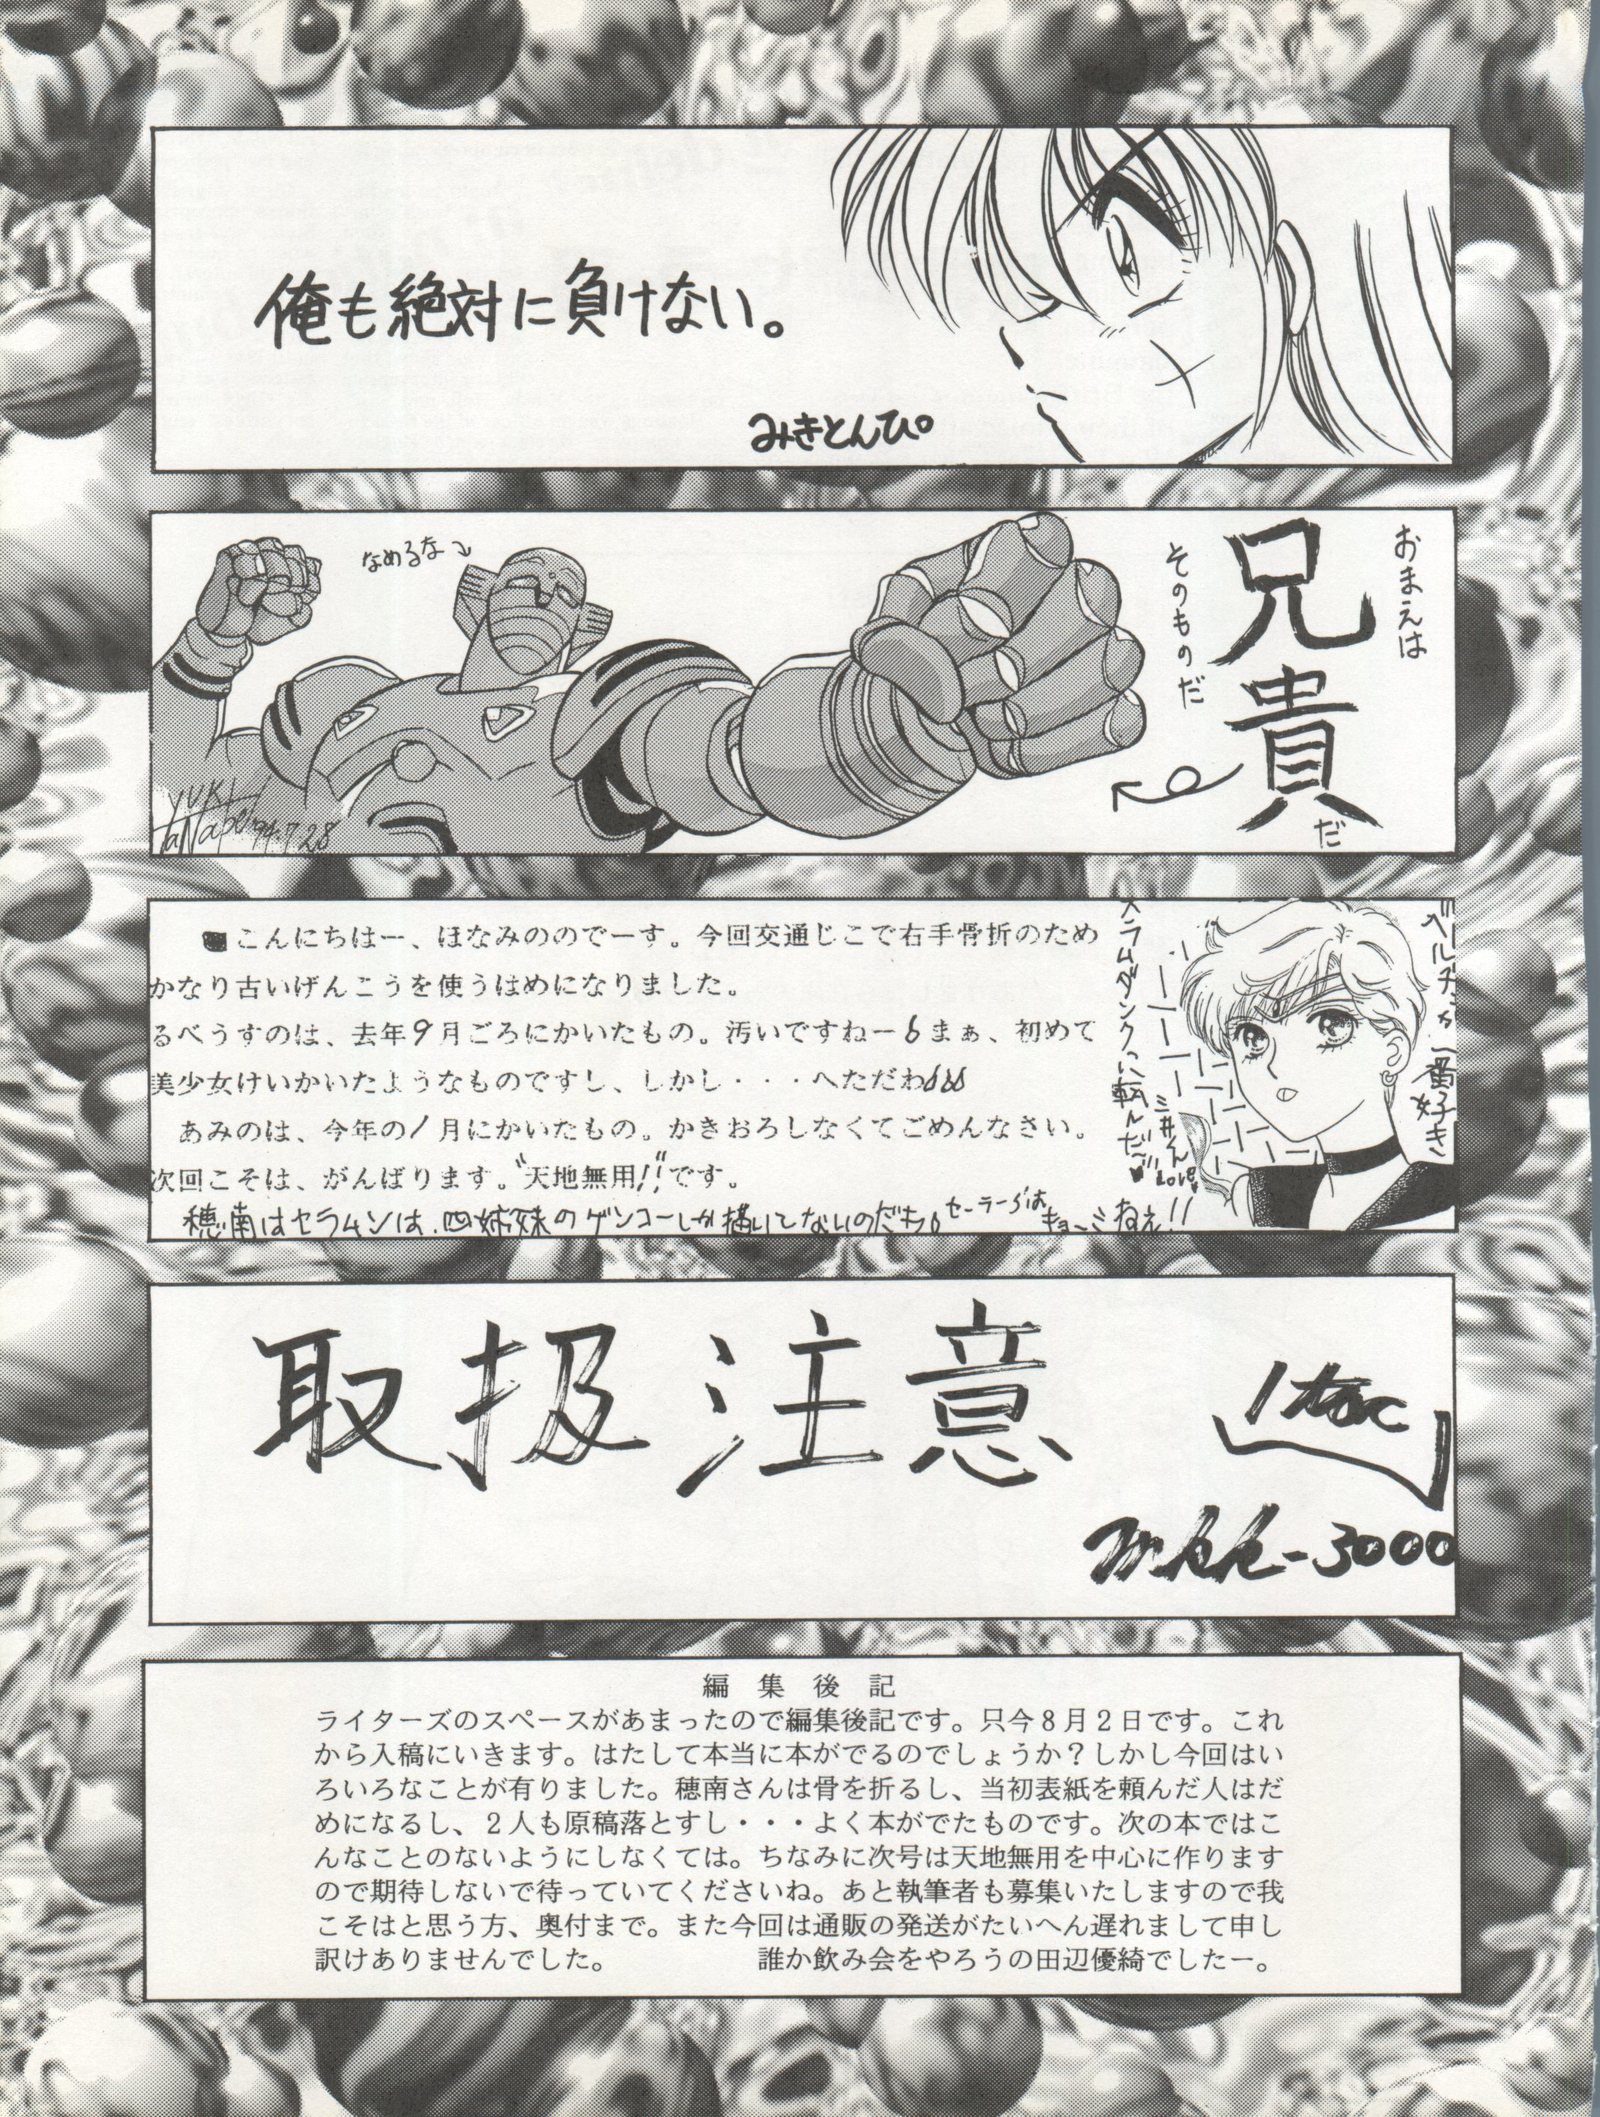 俺も絶対に負けない。
みきとんぴ。
おまえは
兄貴だ
そのものだ
なめるな
YUKI
TaNabe '94.7.28
■こんにちはー、ほなみのでーす。今回交通じこで右手骨折のため
かなり古いげんこうを使うはめになりました。
るべうすのは、去年9月ごろにかいたもの。汚いですねーまぁ、初めて
美少女けいかいたようなものですし、しかし・・・へただわ
あみのは、今年の1月にかいたもの。かきおろしなくてごめんなさい。
次回こそは、がんばります。"天地無用!!"です。
穂南はセラムンは、四姉妹のゲンコーしか描いてないのだち。セーラーらはキョーミねぇ!!
ベルチェが一番好き
スラムダンクに転んだ
三井くん
Love
取扱注意
mkk-3000
編集後記
ライターズのスペースがあまったので編集後記です。只今8月2日です。これ
から入稿にいきます。はたして本当に本がでるのでしょうか?しかし今回はい
ろいろなことが有りました。穂南さんは骨を折るし、当初表紙を頼んだ人はだ
めになるし、2人も原稿落とすし・・・よく本がでたものです。次の本ではこ
んなことのないようにしなくては。ちなみに次号は天地無用を中心に作ります
ので期待しないで待っていてくださいね。あと執筆者も募集いたしますので我
こそはと思う方、奥付まで。また今回は通販の発送がたいへん遅れまして申し
訳けありませんでした。 誰か飲み会をやろうの田辺優綺でしたー。